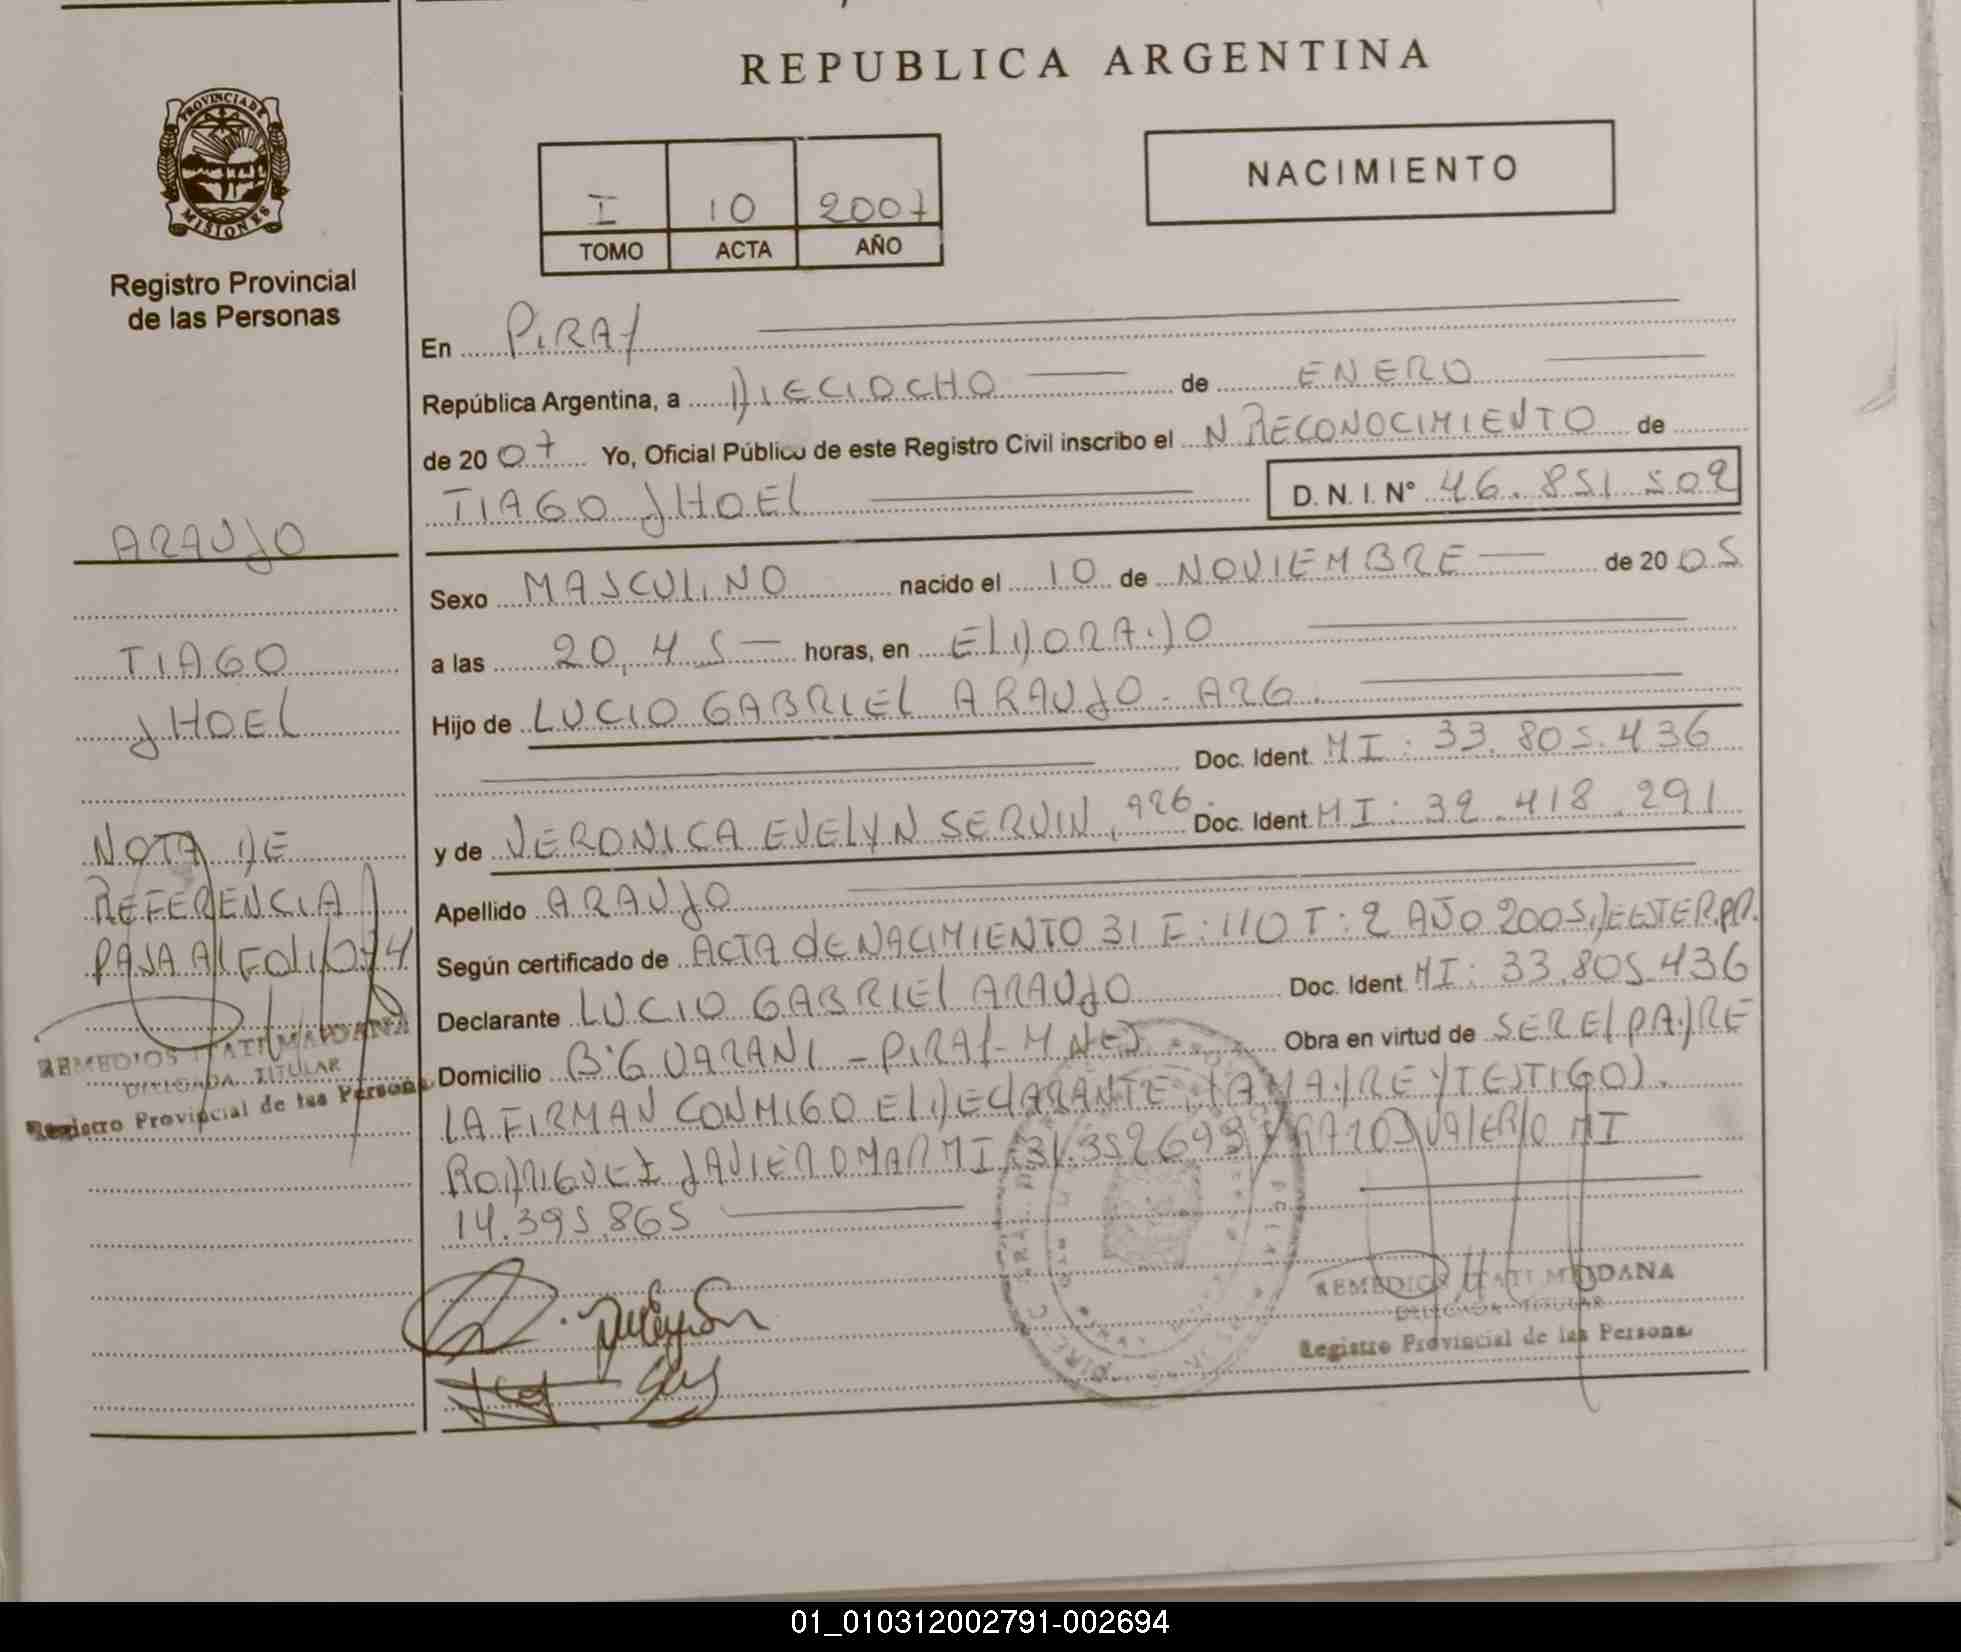 REPUBLICA ARGENTINA
PROVINCIA DE
MISIONES
Registro Provincial
de las Personas
NACIMIENTO
I 10 2007
TOMO ACTA AÑO
En PIRAY
República Argentina, a DIECIOCHO de ENERO
de 2007 Yo, Oficial Público de este Registro Civil inscribo el N RECONOCIMIENTO de
TIAGO JHOEL D. N. I. N° 46.851.502
Sexo MASCULINO nacido el 10 de NOVIEMBRE de 2005
a las 20,45 horas, en ELDORADO
Hijo de LUCIO GABRIEL ARAUJO - ARG.
Doc. Ident. MI: 33.805.436
y de VERONICA EVELYN SERVIN, Doc. Ident. MI: 32.418.291
Apellido ARAUJO
Según certificado de ACTA DE NACIMIENTO 31 F: 110 T: 2 AÑO 2005, DE ESTE R.P.P.
Declarante LUCIO GABRIEL ARAUJO Doc. Ident. MI: 33.805.436
Domicilio B° GUARANI - PIRAY - MNES Obra en virtud de SER EL PADRE
LA FIRMAN CONMIGO EL DECLARANTE, LA MADRE Y TESTIGOS.
RODRIGUEZ JAVIER OMAR MI 31.352693 Y VALERIO MI
14.395.865
REMEDIOS ITATI MAIDANA
DELEGADA TITULAR
Registro Provincial de las Personas
ARAUJO
TIAGO
JHOEL
NOTA DE
REFERENCIA
PASA AL FOLIO
REMEDIOS ITATI MAIDANA
DELEGADA TITULAR
Registro Provincial de las Personas
01_010312002791-002694